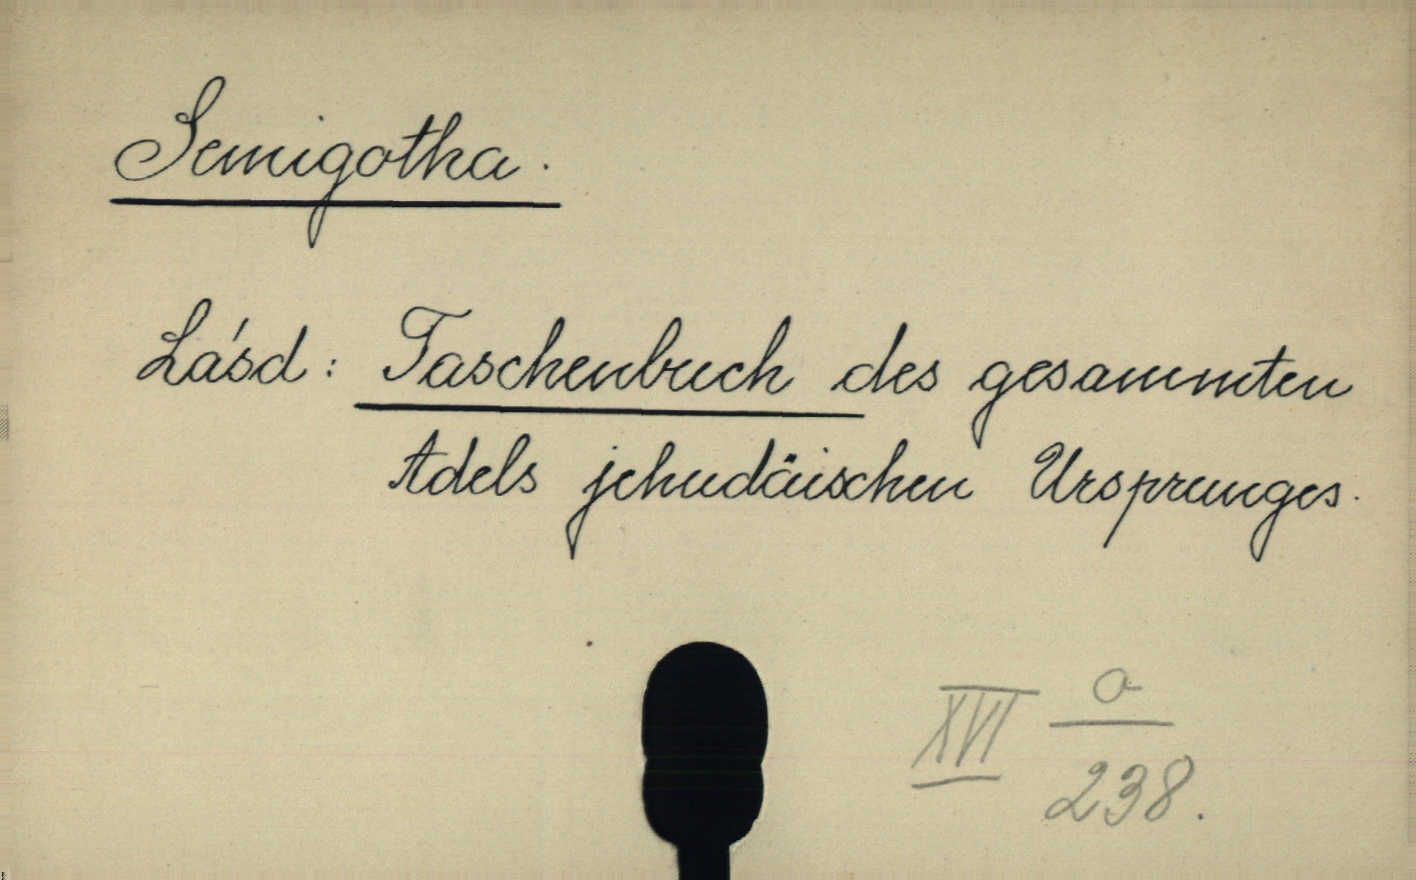 Semigotha.
Lásd: Taschenbuch des gesammten
Adels jehudäischen Ursprunges.
XVI a
238.